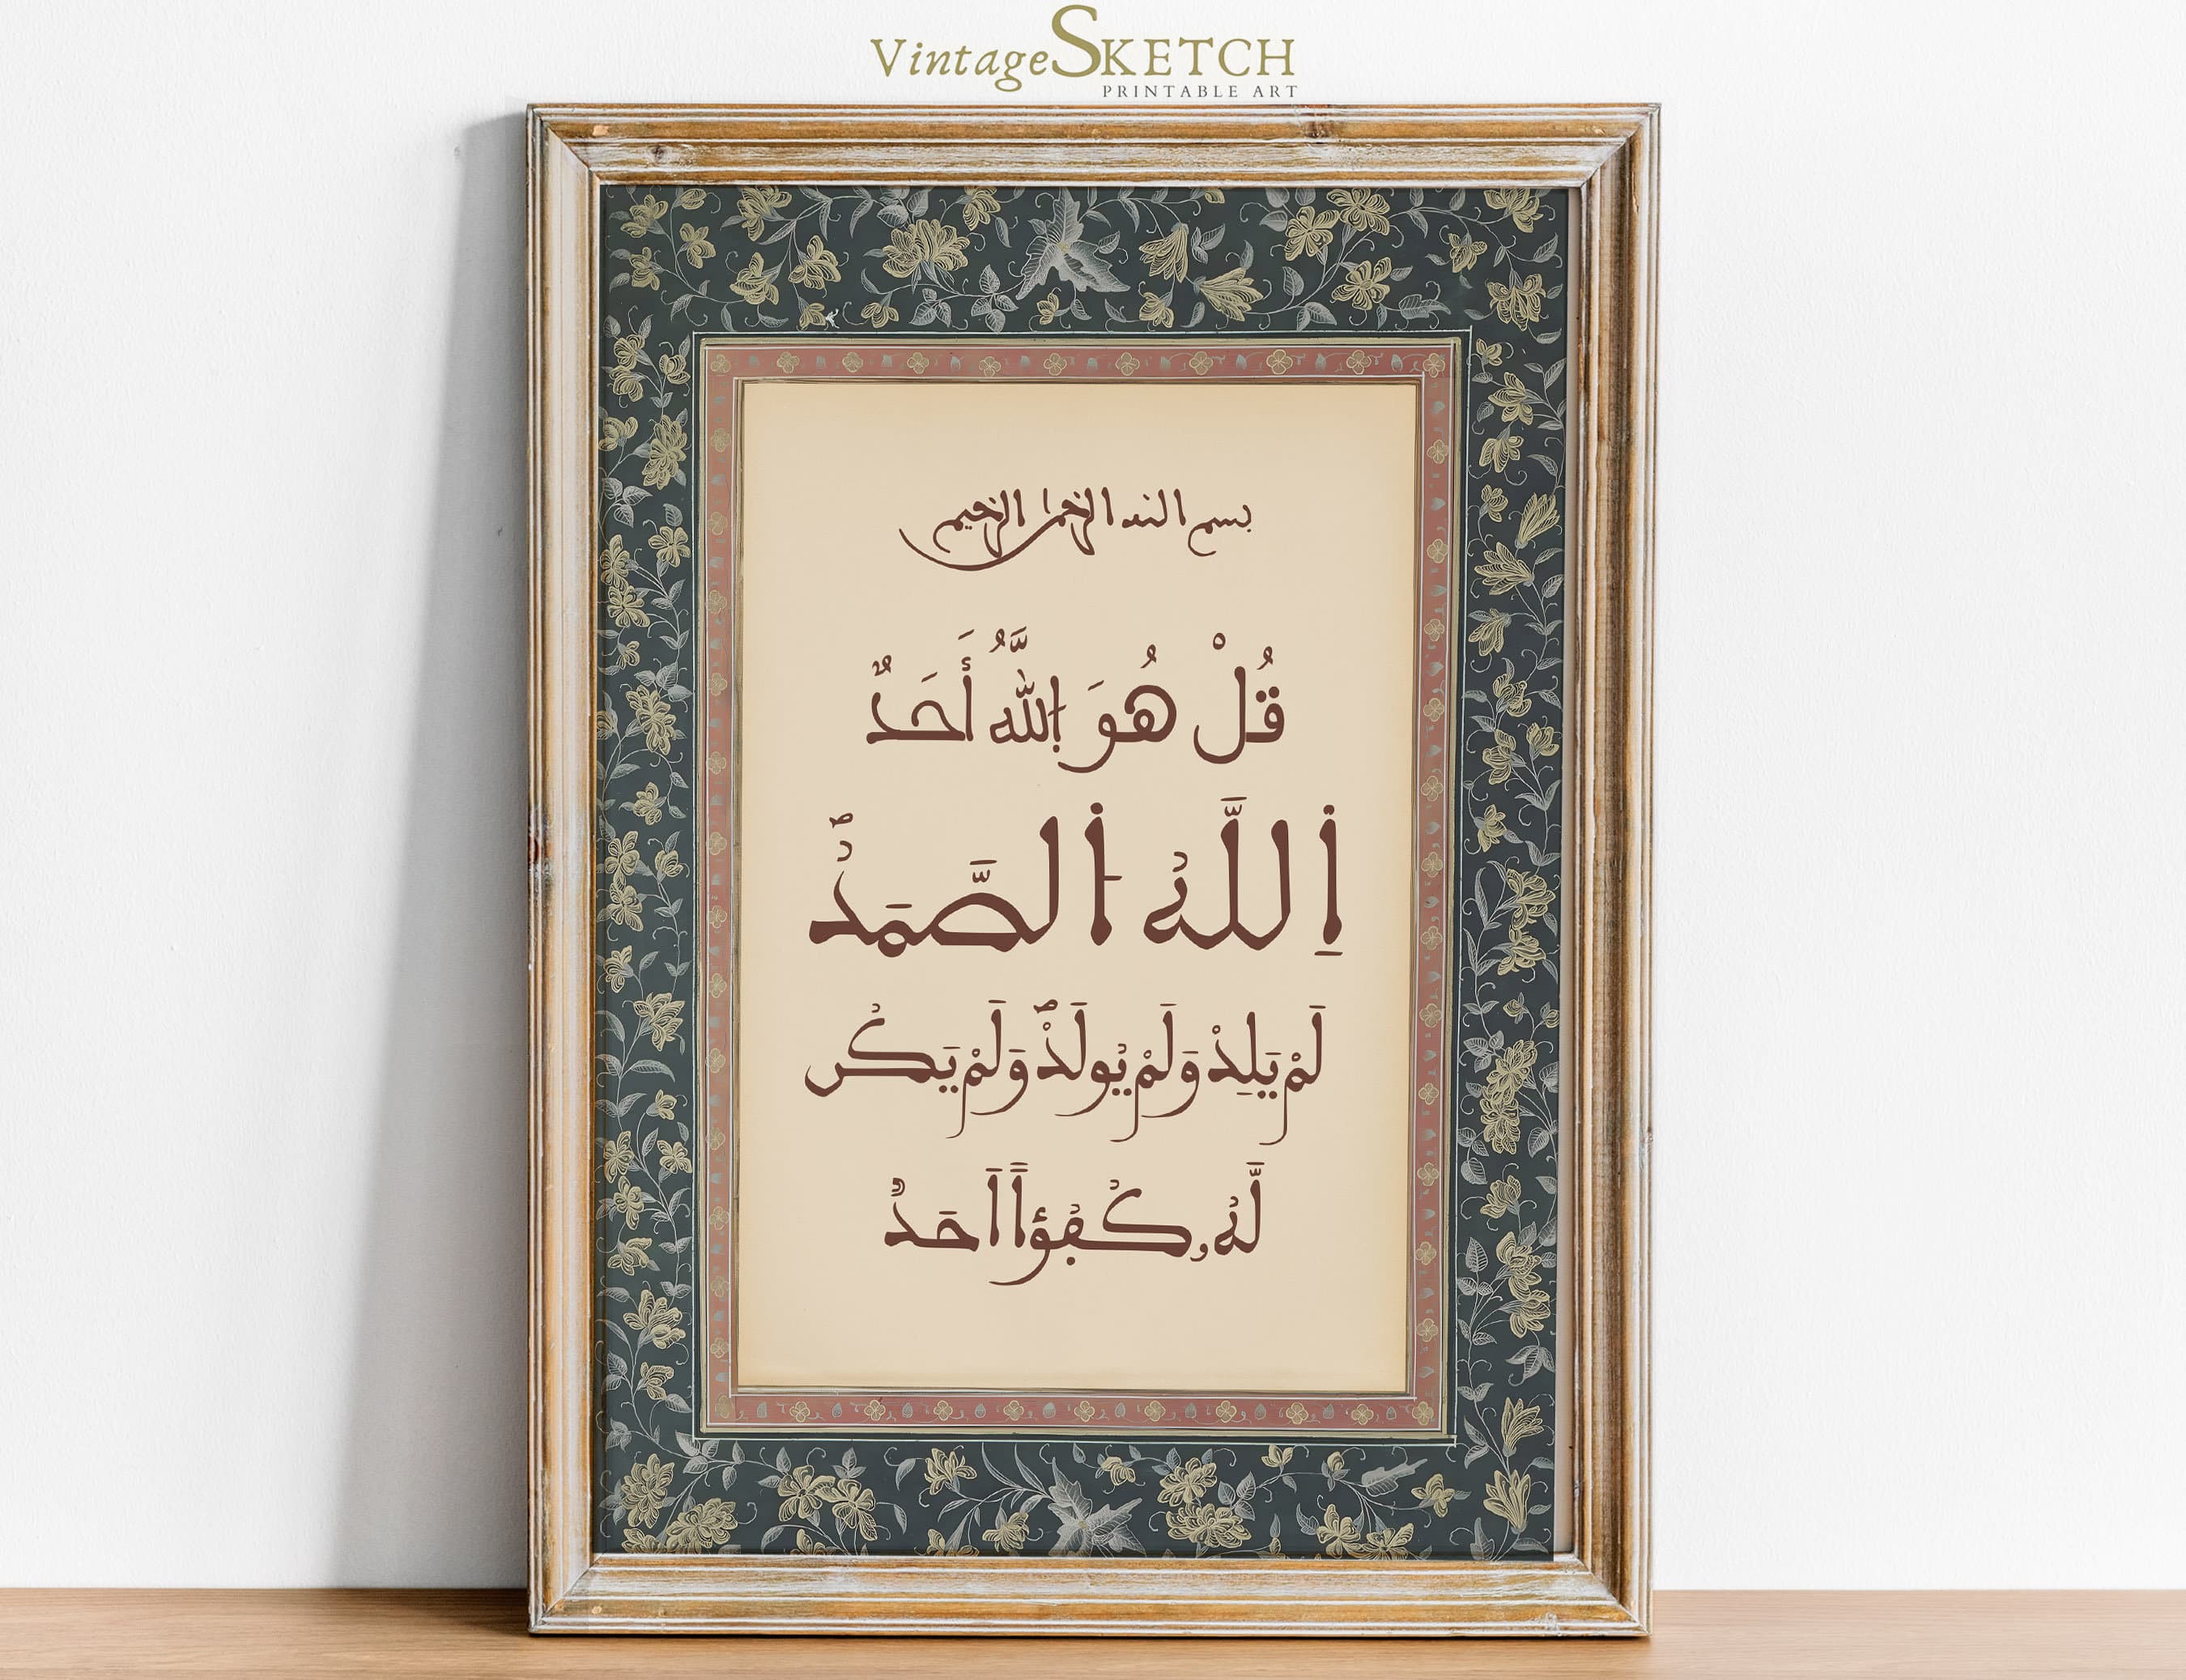 VintageSKETCH
PRINTABLE ART
بسم الله الرحمن الرحيم
قُلْ هُوَ اَ۬للَّهُ أَحَدٌ
اِ۬للَّهُ اُ۬لصَّمَدُ
لَمْ يَلِدْ وَلَمْ يُولَدْ وَلَمْ يَكُن
لَّهُۥ كُفُؤاً اَحَدٌ